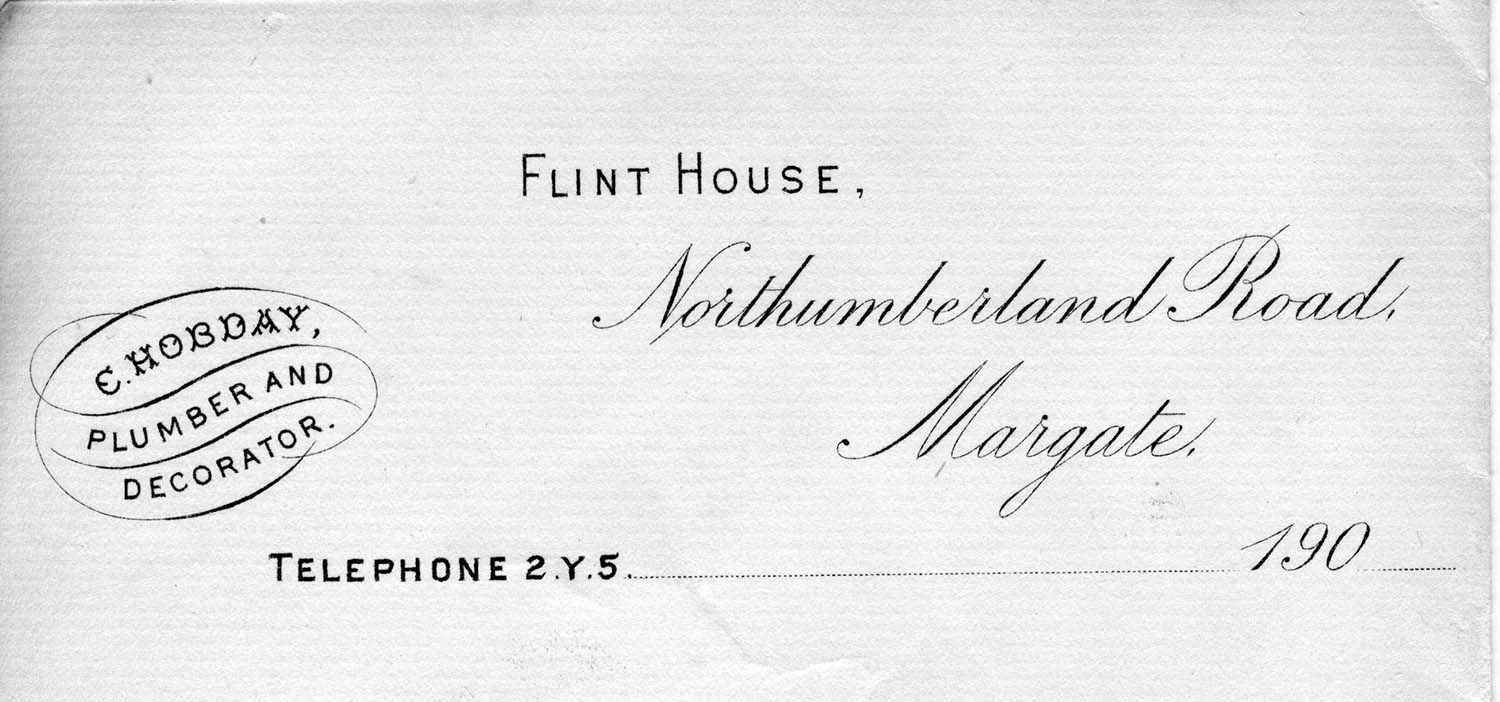 FLINT HOUSE,
Northumberland Road,
Margate.
E. HOBDAY,
PLUMBER AND
DECORATOR.
TELEPHONE 2.Y.5. 190